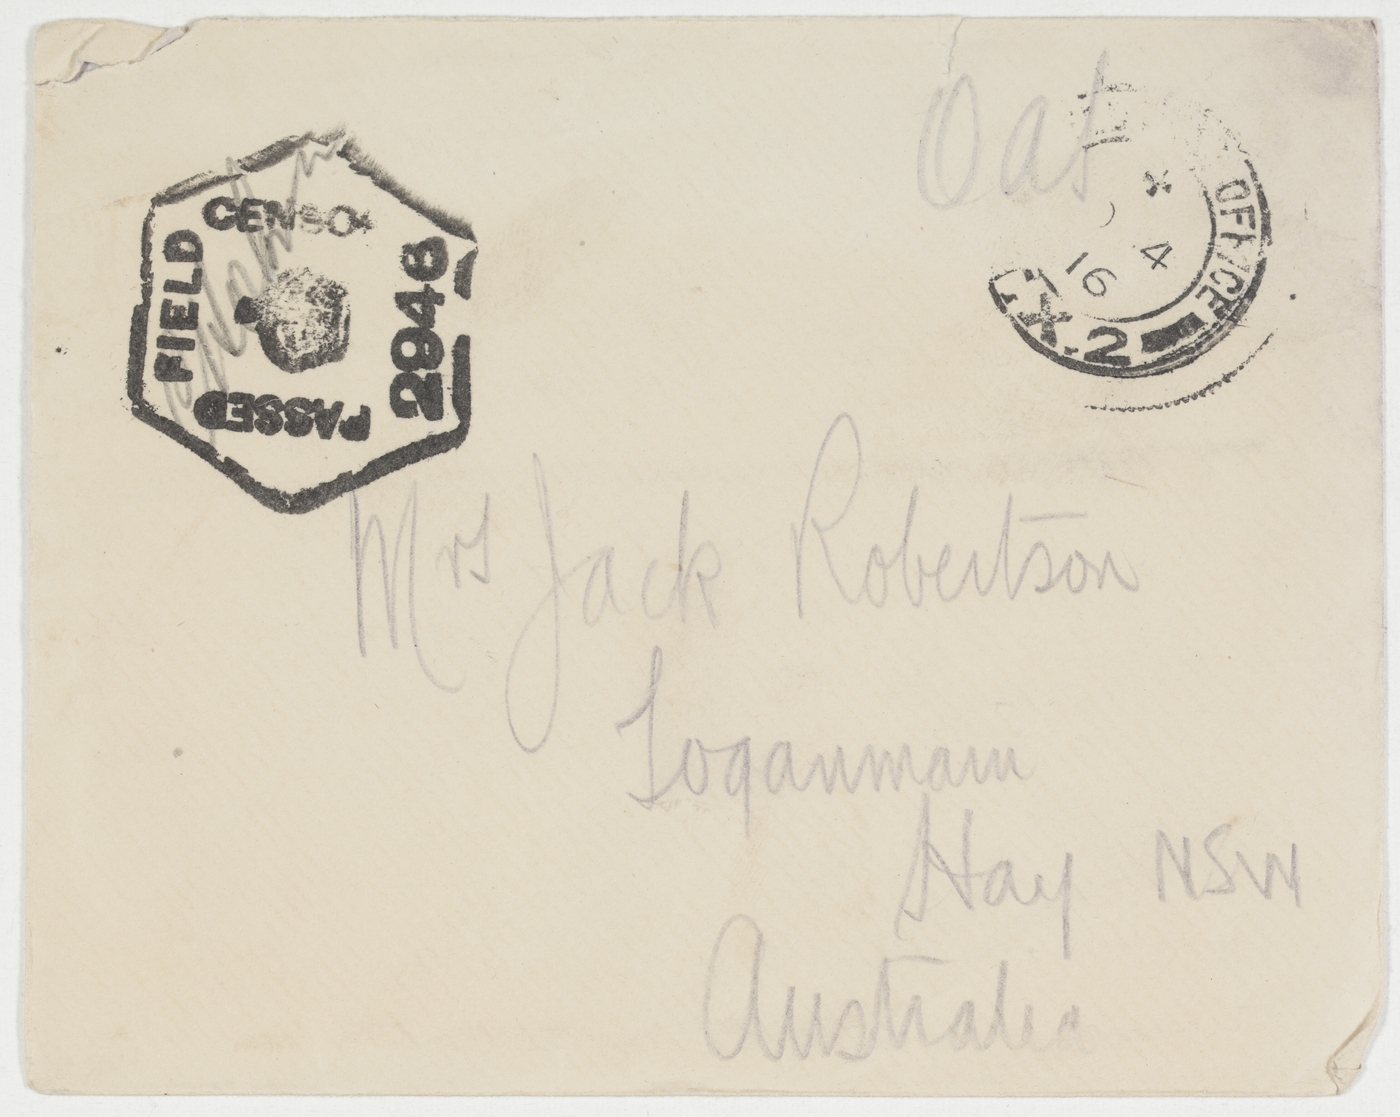 Oat
OFFICE
X
4
16
X.2
FIELD
CENSO
2946
PASSED
Mrs Jack Robertson
Toganmain
Hay NSW
Australia